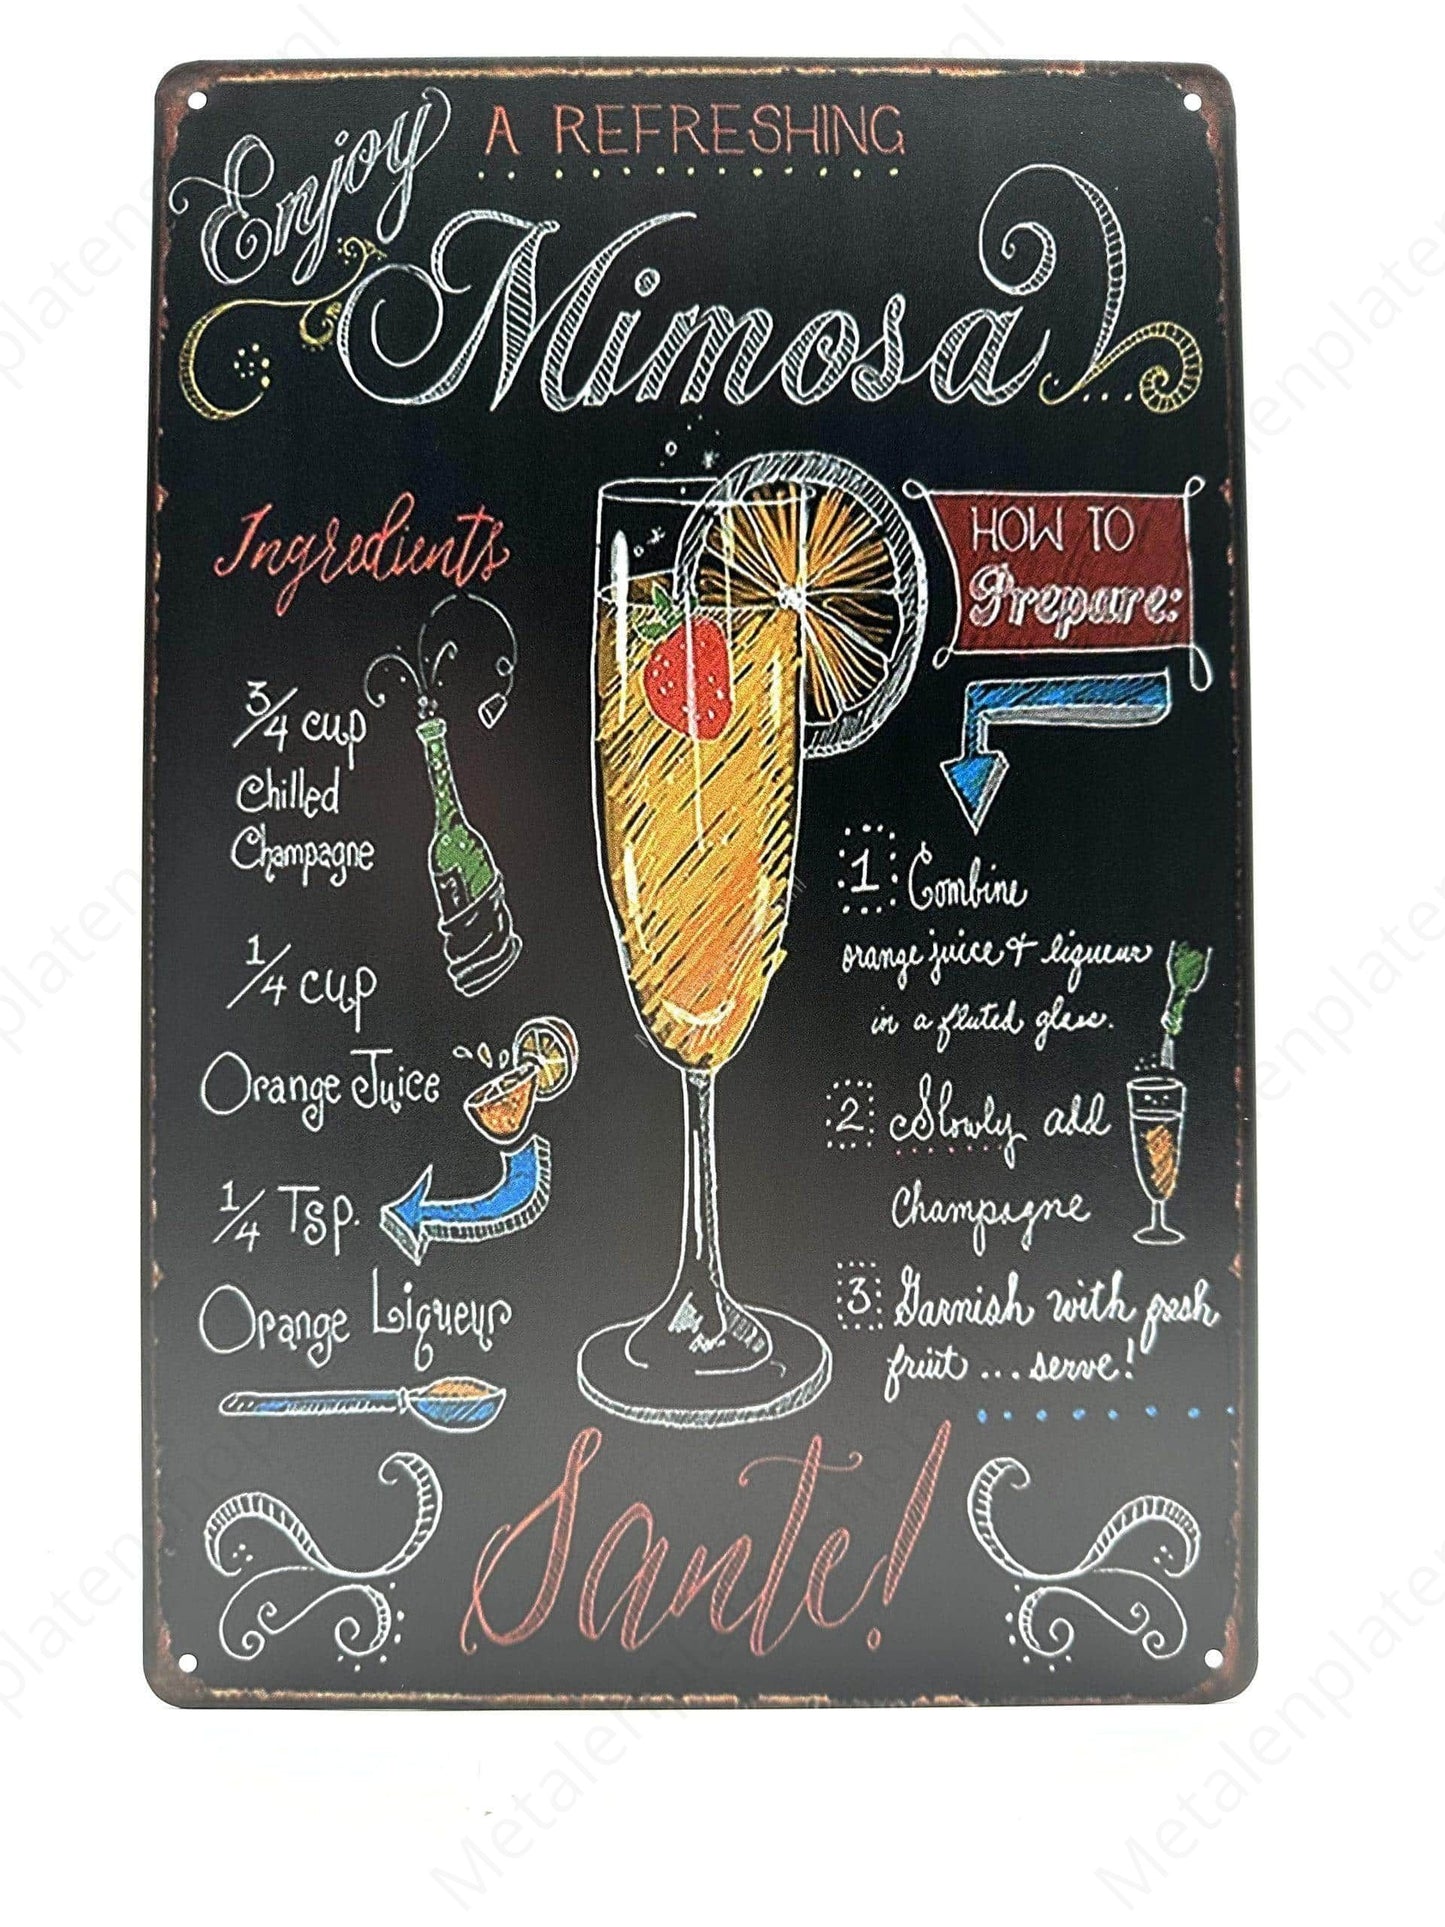 Enjoy
A REFRESHING
Mimosa
Ingredients
3/4 cup
Chilled
Champagne
1/4 cup
Orange Juice
1/4 Tsp.
Orange Liqueur
HOW TO
Prepare:
1 Combine
orange juice + liqueur
in a fluted glass.
2 Slowly add
Champagne
3 Garnish with fresh
fruit ... serve!
Santé!
Metalenplatenshop.nl